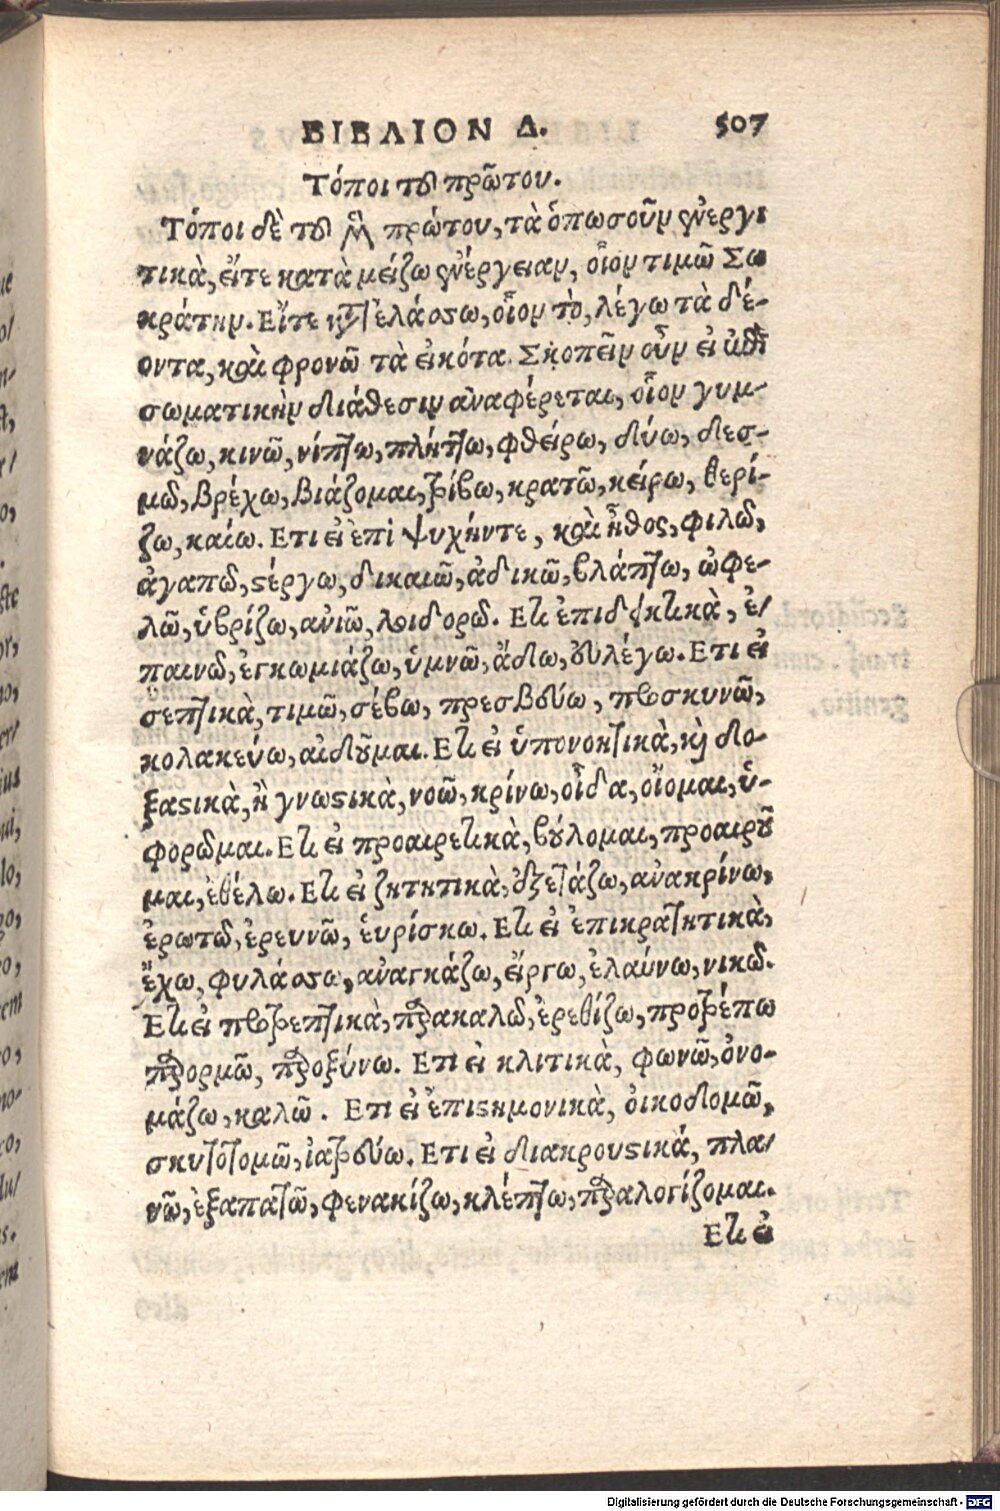 ΒΙΒΛΙΟΝ Δ. 507
Τόποι τοῦ πρῶτου.
Τόποι δὲ τοῦ μὲν πρώτου, τὰ ὁπωσοῦν ἐνεργη
τικὰ, εἴτε κατὰ μείζω ἐνέργειαν, οἷον τιμῶ Σω
κράτην. Εἴτε κατ' ἐλάσσω, οἷον τὸ, λέγω τὰ δέ-
οντα, καὶ φρονῶ τὰ εἰκότα. Σκοπεῖν οὖν εἰ
σωματικὴν διάθεσιν ἀναφέρεται, οἷον γυμ-
νάζω, κινῶ, νίπτω, πλήττω, φθείρω, λύω, δεσ-
μῶ, βρέχω, βιάζομαι, τρίβω, κρατῶ, κείρω, θερί-
ζω, καίω. Ετι εἰ ἐπὶ ψυχήντε, καὶ ἦθος, φιλῶ,
ἀγαπῶ, στέργω, δικαιῶ, ἀδικῶ, βλάπτω, ὠφε-
λῶ, ὑβρίζω, ἀνιῶ, λοιδορῶ. Ετι ἐπιδεικτικὰ, ἐ/
παινῶ, ἐγκωμιάζω, ὑμνῶ, ἄδω, εὐλέγω. Ετι εἰ
σεπτικὰ, τιμῶ, σέβω, πρεσβεύω, προσκυνῶ,
κολακεύω, αἰδοῦμαι. Ετι εἰ ὑπονοητικὰ, καὶ δο-
ξαστικὰ, ἢ γνωστικὰ, νοῶ, κρίνω, οἶδα, οἴομαι, ὑ-
φορῶμαι. Ετι εἰ προαιρετικὰ, βούλομαι, προαιροῦ
μαι, ἐθέλω. Ετι εἰ ζητητικὰ, ἐξετάζω, ἀνακρίνω,
ἐρωτῶ, ἐρευνῶ, εὑρίσκω. Ετι εἰ ἐπικρατητικὰ,
ἔχω, φυλάσσω, ἀναγκάζω, εἴργω, ἐλαύνω, νικῶ.
Ετι εἰ προτρεπτικὰ, παρακαλῶ, ἐρεθίζω, προτρέπω
παρορμῶ, παροξύνω. Ετι εἰ κλιτικὰ, φωνῶ, ὀνο-
μάζω, καλῶ. Ετι εἰ ἐπιστημονικὰ, οἰκοδομῶ,
σκυτοτομῶ, ἰατρεύω. Ετι εἰ διακρουστικά, πλα/
νῶ, ἐξαπατῶ, φενακίζω, κλέπτω, παραλογίζομαι.
Ετι εἰ
Digitalisierung gefördert durch die Deutsche Forschungsgemeinschaft - DFG